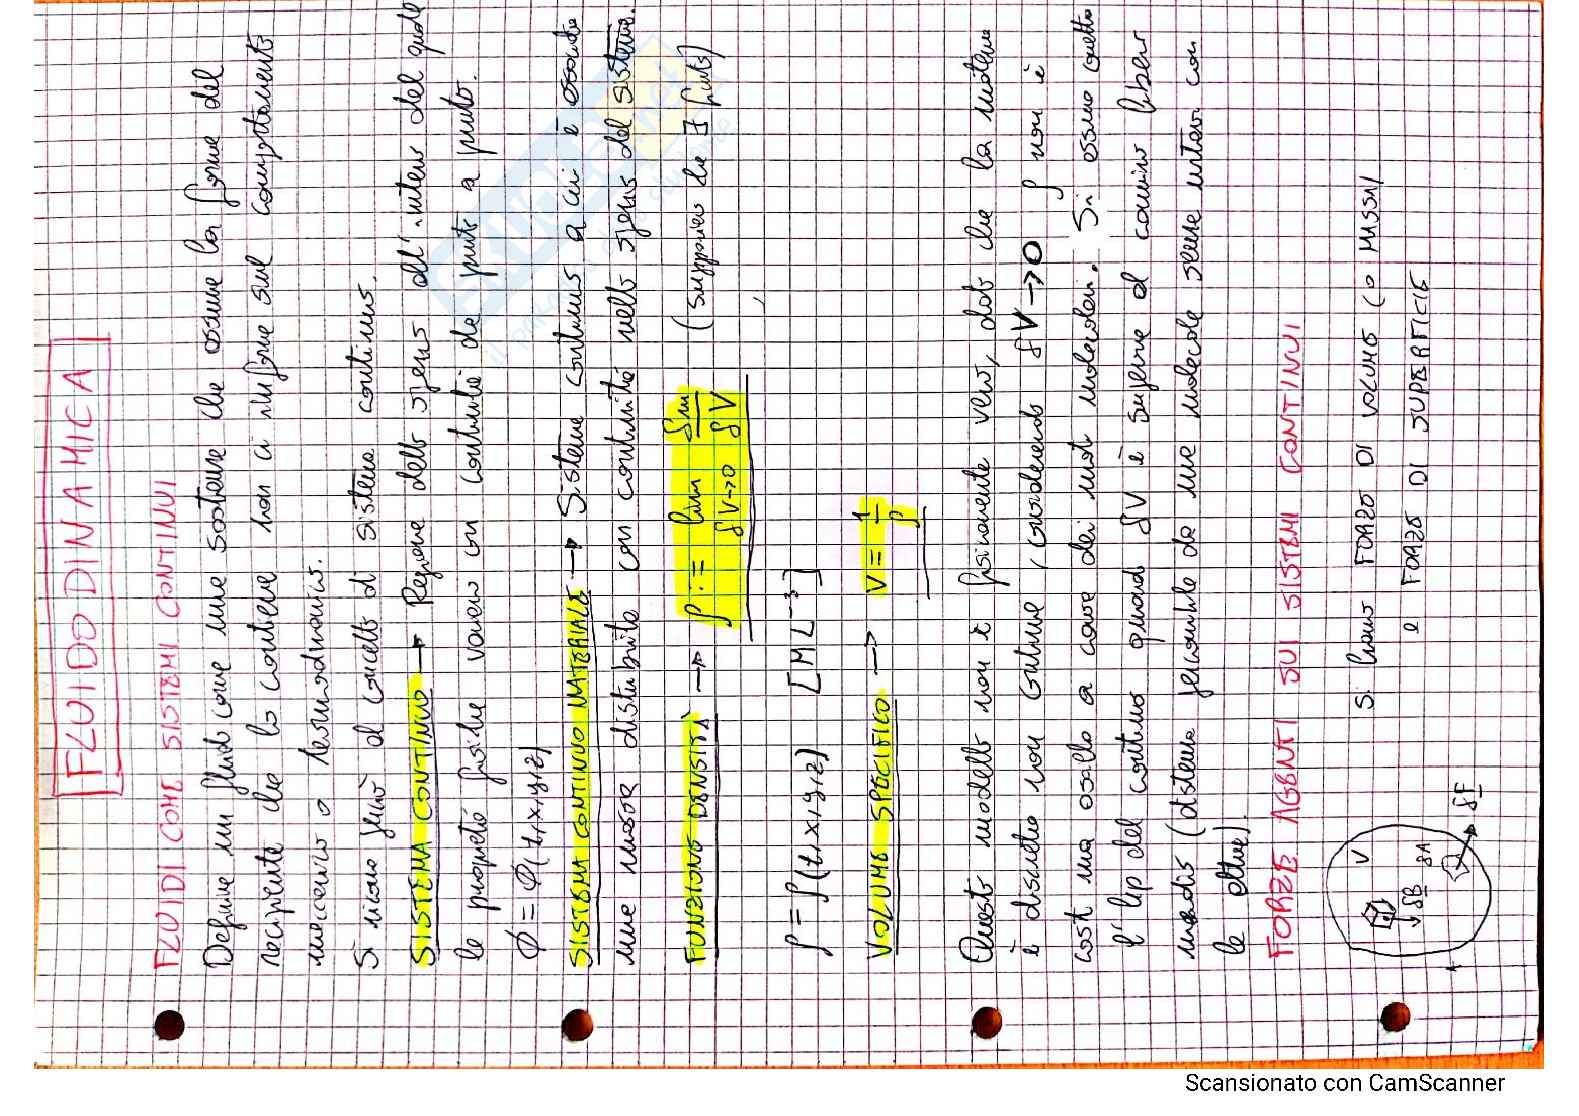 FLUIDODINAMICA
FLUIDI COME SISTEMI CONTINUI
Definire un fluido come una sostanza che assume la forma del
recipiente che lo contiene non ci informa sul comportamento
meccanico o termodinamico.
Si ricava perciò il concetto di sistema continuo.
SISTEMA CONTINUO → Regione dello spazio all'interno del quale
le proprietà fisiche variano con continuità da punto a punto.
ϕ = ϕ(t,x,y,z)
SISTEMA CONTINUO MATERIALE → Sistema continuo a cui è associata
una massa distribuita con continuità nello spazio del sistema.
FUNZIONE DENSITÀ → ρ := lim δV→0 δm/δV (Supposto che ∃ finito)
ρ = ρ(t,x,y,z) [ML⁻³]
VOLUME SPECIFICO → v = 1/ρ
Questo modello non è fisicamente vero, dato che la materia
è discreta non continua, considerando δV→0 ρ non è
cost ma oscilla a causa dei moti molecolari. Si assume quindi
l'hp del continuo quando δV è superiore al cammino libero
medio (distanza percorribile da una molecola senza interaz con
le altre).
FORZE AGENTI SUI SISTEMI CONTINUI
V
δB
δA
δF
Si hanno FORZE DI VOLUME (O MASSA)
e FORZE DI SUPERFICIE
Scansionato con CamScanner